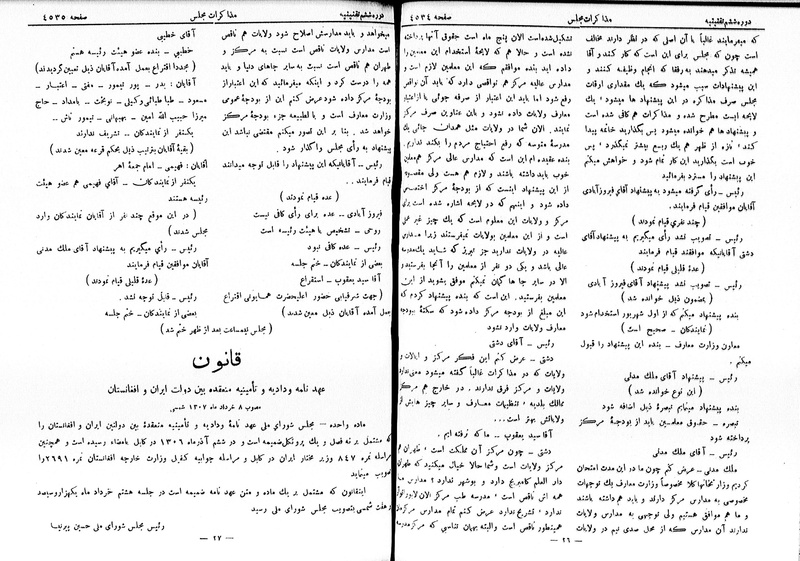 دوره ششم تقنینیه
مذاکرات مجلس
صفحه ٤٥٣٤
که میفرمایند غالباً با آن اصلی که در نظر دارند مخالف
است چون که مجلس برای این است که کار کنند و آقا
همیشه تذکر میدهند برفقا که انجام وظیفه کنند و
این پیشنهادات سبب میشود که یک مقداری اوقات
مجلس صرف مذاکره در این پیشنهاد ها میشود، یک
لایحه ایست مطرح شده و مذاکرات هم کافی شده است
و پیشنهاد ها هم خوانده میشود پس بگذارید خاتمه پیدا
کند، تازه از ظهر هم یک وربع بیشتر نمیگذرد، پس
خوب است بگذارید این کار تمام شود و خواهش میکنم
این پیشنهاد را مسترد بفرمائید
رئیس ـ رأی گرفته میشود به پیشنهاد آقای فیروزآبادی
آقایان موافقین قیام فرمایند.
( چند نفری قیام نمودند )
رئیس ـ تصویب نشد رأی میگیریم به پیشنهاد آقای
دشتی آقایانیکه موافقند قیام فرمایند
( عدهٔ قلیلی قیام نمودند )
رئیس ـ تصویب نشد پیشنهاد آقای فیروز آبادی
( بمضمون ذیل خوانده شد )
بنده پیشنهاد میکنم که از اول شهریور استخدام شود
( نمایندگان ـ صحیح است )
معاون وزارت معارف ـ بنده این پیشنهاد را قبول
میکنم .
رئیس ـ پیشنهاد آقای ملک مدنی
( این نوع خوانده شد )
بنده پیشنهاد مینمایم تبصرهٔ ذیل اضافه شود
تبصره ـ حقوق معلمین باید از بودجهٔ مرکز
پرداخته شود
رئیس ـ آقای ملک مدنی
ملک مدنی ـ عرض کنم چون ما در این مدت امتحان
کردیم وزارتخانها کلا مخصوصاً وزارت معارف یک توجهات
مخصوصی به مدارس مرکز دارند و باید هم داشته باشند
و ما هم موافق هستیم ولی توجهی به مدارس ولایات
ندارند آن مدارس که از محل صدی نیم در ولایات
تشکیل شده است الان پنج ماه است حقوق آنها پرداخته
نشده است و حالا هم که لایحهٔ استخدام این معلمین را
داده اید بنده موافقم که این معلمین لازم است و
مدارس عالیه مرکز هم نواقصی دارد که باید آن نواقص
رفع شود اما باید این اعتبار از صرفه جوئی یا از اعتبار
معارف ولایات داده نشود و باین عناوین صرف مرکز
نمایند . الان شما در ولایات مثل همدان جائی یک
مدرسهٔ متوسطه که رفع احتیاج مردم را بکند نداریم.
بنده عقیده ام این است که مدارس عالی مرکز هم معلمین
خوب باید داشته باشند و لازم هم هست ولی مقصود
از این پیشنهاد اینست که از بودجهٔ مرکز اختصاص
داده شود و اینهم که در لایحه اشاره شده است برای
مرکز و ولایات این معلوم است که یک چیز غیر عملی
است و از این معلمین بولایات نمیفرستند زیرا مدارس
عالیه در ولایات ندارید جز تبریز که شاید یک مدرسه
عالی باشد و یکی دو نفر از معلمین را آنجا بفرستید و
الا در سایر جا ها گمان نمیکنم موفق بشوید از این
معلمین بفرستید . این است که بنده پیشنهاد کردم که
این مبلغ از بودجه مرکز داده شود که سکتهٔ ببودجه
معارف ولایات وارد نشود
رئیس ـ آقای دشتی
دشتی ـ عرض کنم این فکر مرکز و ایالات و
ولایات که در مذاکرات غالباً گفته میشود معنی ندارد
ولایات و مرکز فرقی ندارند . در خارج هم مرکز
ممالک بلدیه، تنظیمات معارف و سایر چیز هایش از
ولایاتش بهتر است...
آقا سید یعقوب ـ ما که نرفته ایم .
دشتی ـ چون مرکز آن مملکت است، طهران هم
مرکز ولایات است و شما حالا خیال میکنید که طهران
دار العلم کامبریج دارد و بوشهر ندارد؟ مدارس ما
همه اش ناقص است، مدرسه طب مرکز الان لابوراتوار
ندارد، تشریح ندارد عرض کنم تمام مدارس مرکز مان
همینطور ناقص است والبته بهمان تناسبی که مرکز مدرسه
ـ ٢٦ ـ
دوره ششم تقنینیه
مذاکرات مجلس
صفحه ٤٥٣٥
میخواهد و باید مدارسش اصلاح شود ولایات هم ناقص
است مدارس ولایات ناقص است نسبت به مرکز و
طهران هم ناقص است نسبت به سایر جاهای دنیا و باید
همه را درست کرد و اینکه میفرمائید که این اعتبار از
بودجهٔ مرکز داده شود عرض کنم این از بودجهٔ عمومی
وزارت معارف است و با لطبیعه جزء بودجهٔ مرکز
خواهد شد . بنا بر این تصور میکنم مقتضی نباشد این
پیشنهاد به رأی مجلس واگذار شود .
رئیس ـ آقایانیکه این پیشنهاد را قابل توجه میدانند
قیام فرمایند ..
( عده قیام نمودند )
فیروز آبادی .. عده برای رأی کافی نیست
روحی ـ تشخیص با هیئت رئیسه است
رئیس ـ عده کافی نبود
بعضی از نمایندگان ـ ختم جلسه
آقا سید یعقوب ـ استقراع
( جهت شرفیابی حضور اعلیحضرت همایونی اقتراع
بعمل آمده آقایان ذیل معین شدند )
آقای خطیبی
خطیبی ـ بنده عضو هیئت رئیسه هستم
( مجدداً اقتراع بعمل آمده آقایان ذیل تعیین گردیدند )
آقایان : بدر ـ پور تیمور ـ مفتی ـ اعتبار ـ
مسعود ـ طباطبائی وکیل ـ نوبخت ـ بامداد ـ حاج
میرزا حبیب الله امین ـ بهبهانی ـ تیمور تاش ..
یکنفر از نمایندگان .. تشریف ندارند
( بقیهٔ آقایان بترتیب ذیل بحکم قرعه معین شدند )
آقایان : فهیمی ـ امام جمعهٔ اهر
یکنفر از نمایندگان ـ آقای فهیمی هم عضو هیئت
رئیسه هستند
( در این موقع چند نفر از آقایان نمایندگان وارد
مجلس شدند )
رئیس ـ رأی میگیریم به پیشنهاد آقای ملک مدنی
آقایان موافقین قیام فرمایند
( عدهٔ قلیلی قیام نمودند )
رئیس ـ قابل توجه نشد .
بعضی از نمایندگان ـ ختم جلسه
( مجلس نیمساعت بعد از ظهر ختم شد )
قانون
عهد نامه و دادیه و تأمینیه منعقده بین دولت ایران و افغانستان
مصوب ٨ خرداد ماه ١٣٠٧ شمسی
ماده واحده ـ مجلس شورای ملی عهد نامهٔ ودادیه و تأمینیه منعقدهٔ بین دولتین ایران و افغانستان را
که مشتمل بر نه فصل و یک پروتکل ضمیمه است و در ششم آذر ماه ١٣٠٦ در کابل بامضاء رسیده است و همچنین
مراسله نمره ٨٤٧ وزیر مختار ایران در کابل و مراسله جوابیه کفیل وزارت خارجه افغانستان نمره ٢٦٩١ را
تصویب مینماید
اینقانون که مشتمل بر یک ماده و متن عهد نامه ضمیمه است در جلسه هشتم خرداد ماه یکهزار و سیصد
و هفت شمسی بتصویب مجلس شورای ملی رسید
رئیس مجلس شورای ملی حسین پیرنیا
ـ ٢٧ ـ